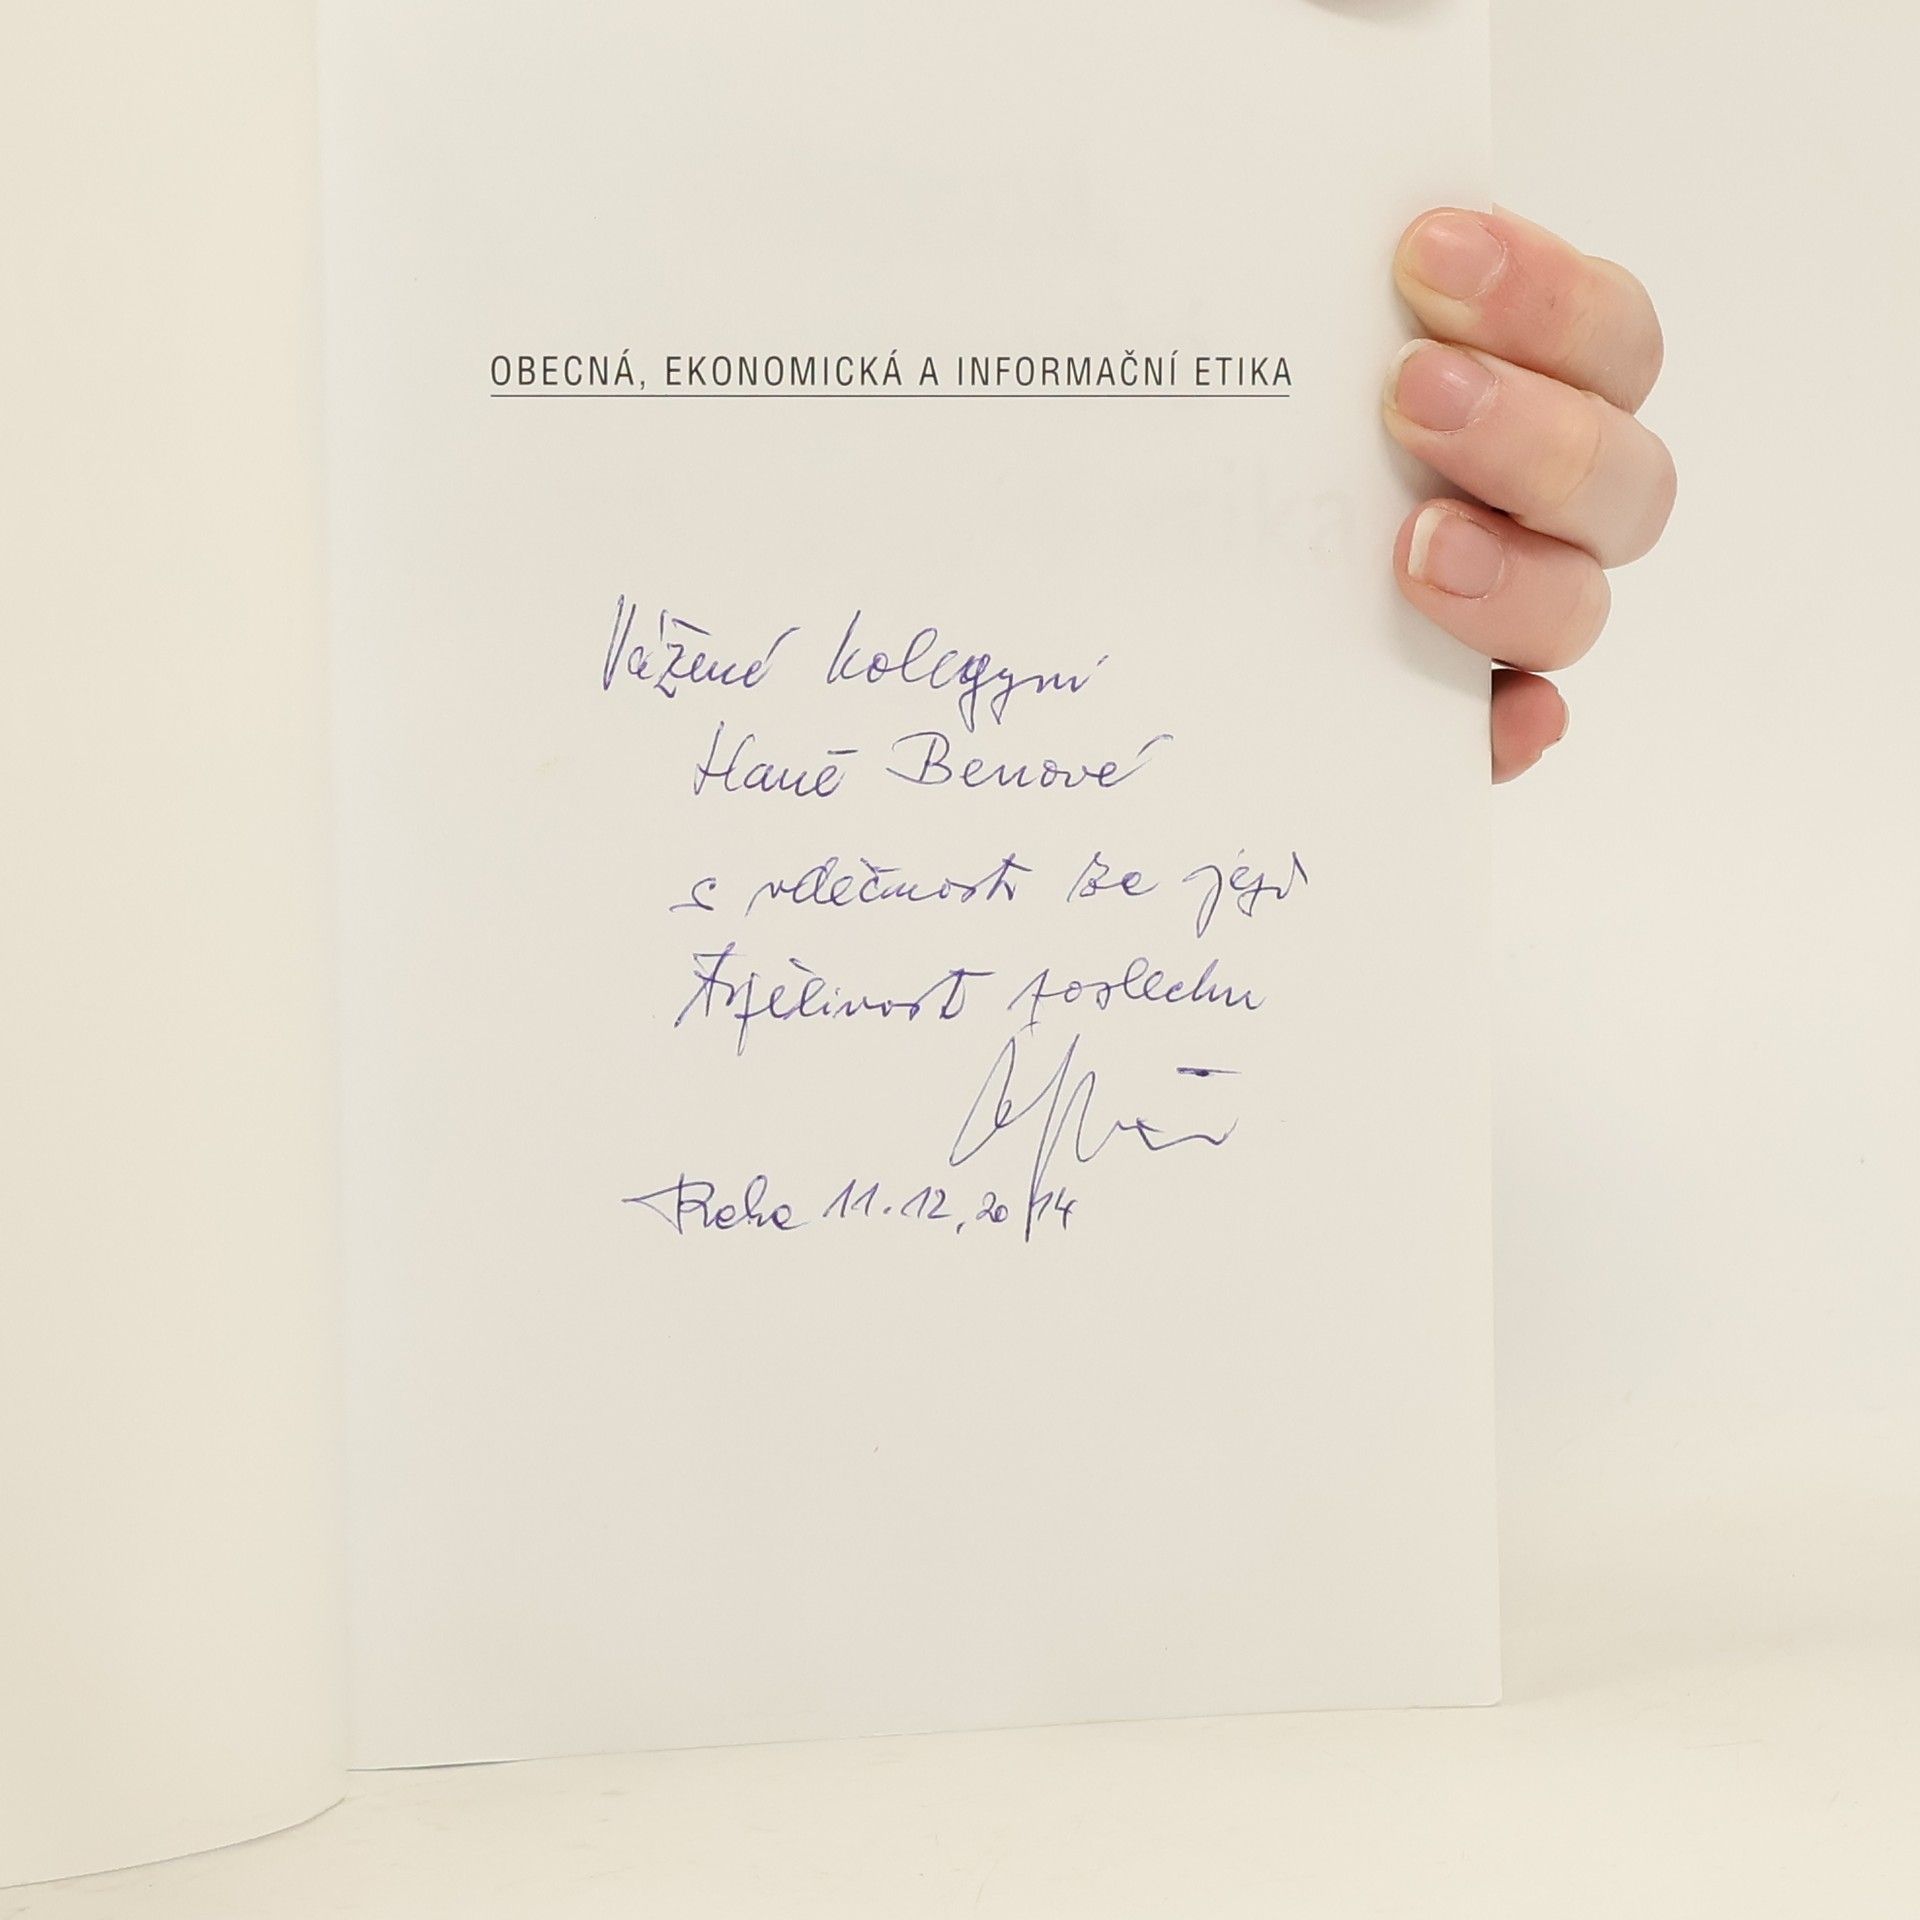 OBECNÁ, EKONOMICKÁ A INFORMAČNÍ ETIKA
Vážené kolegyni
Haně Benové
s vděčností za její
trpělivost poslechu
Praha 11.12.2014